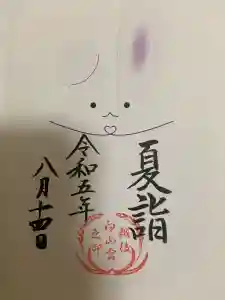 夏詣
越後
白山宮
之印
令和五年
八月十四日